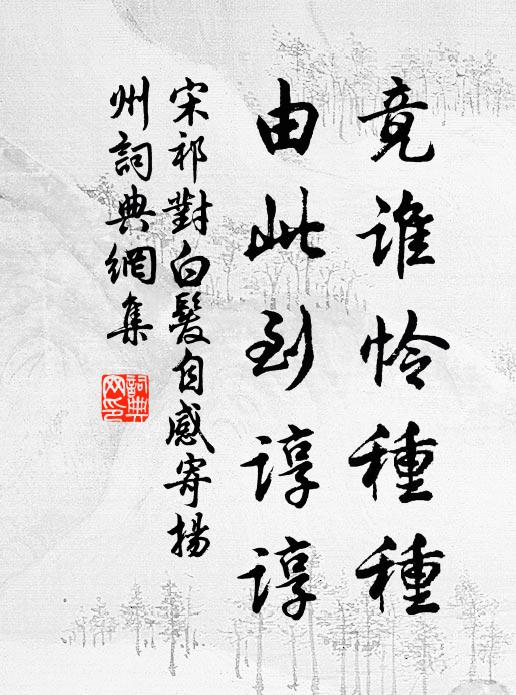 竟誰怜種種
由此到諄諄
宋祁對白髮自感寄揚
州詞典網集
詞典
网印